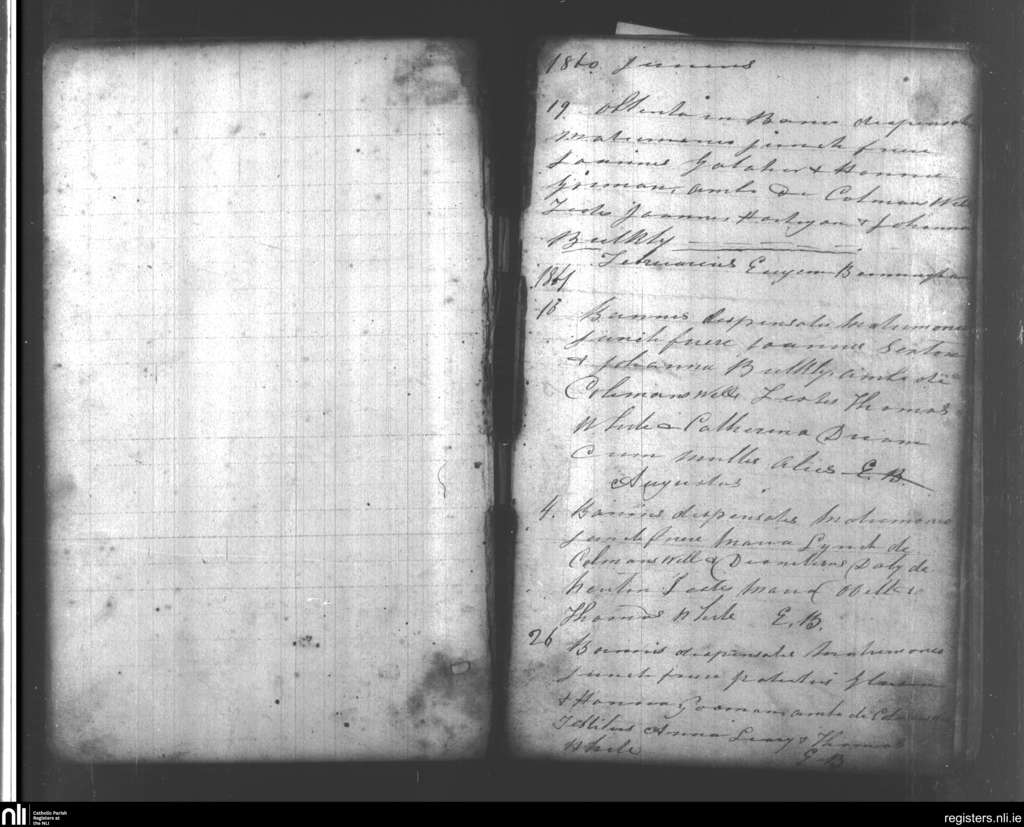 1860 Junius
19 obtenta in Bannis dispensatis
Matrimonio juncti fuere
Joannes Galaher & Hanna
Gorman, ambo de Colmans Well
Testes Joannes & Johanna
Bulkly
Februarius Eugen Bermingham
1861
13 Bannis dispensatis Matrimonio
juncti fuere Joannes Sexton
& Johanna Bulkly ambo de
Colmans Well Testes Thomas
White & Catherina
Cum multis aliis E. B.
Augustus
4. Bannis dispensatis Matrimonio
juncti fuere Maria Lynch de
Colmans Well & Dionisius Daly de
Testes Maria &
Thomas White E. B.
26 Bannis dispensatis Matrimonio
juncti fuere Patritius
& Hanna Gorman, ambo de Colmans Well
Testibus Anna Leary & Thomas
White E B
nli
Catholic Parish
Registers at
the NLI
registers.nli.ie